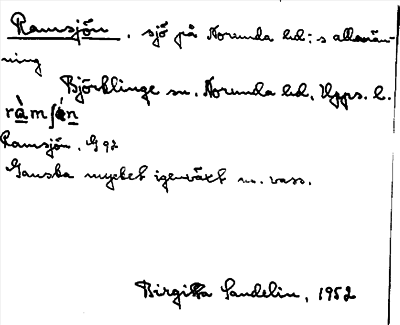 Ramsjön, sjö på Norunda hd:s allmän-
ning
Björklinge sn. Norunda hd. Upps. l.
Ramsjön, G 92
Ganska mycket igenväxt m. vass.
Birgitta Sandelin, 1952